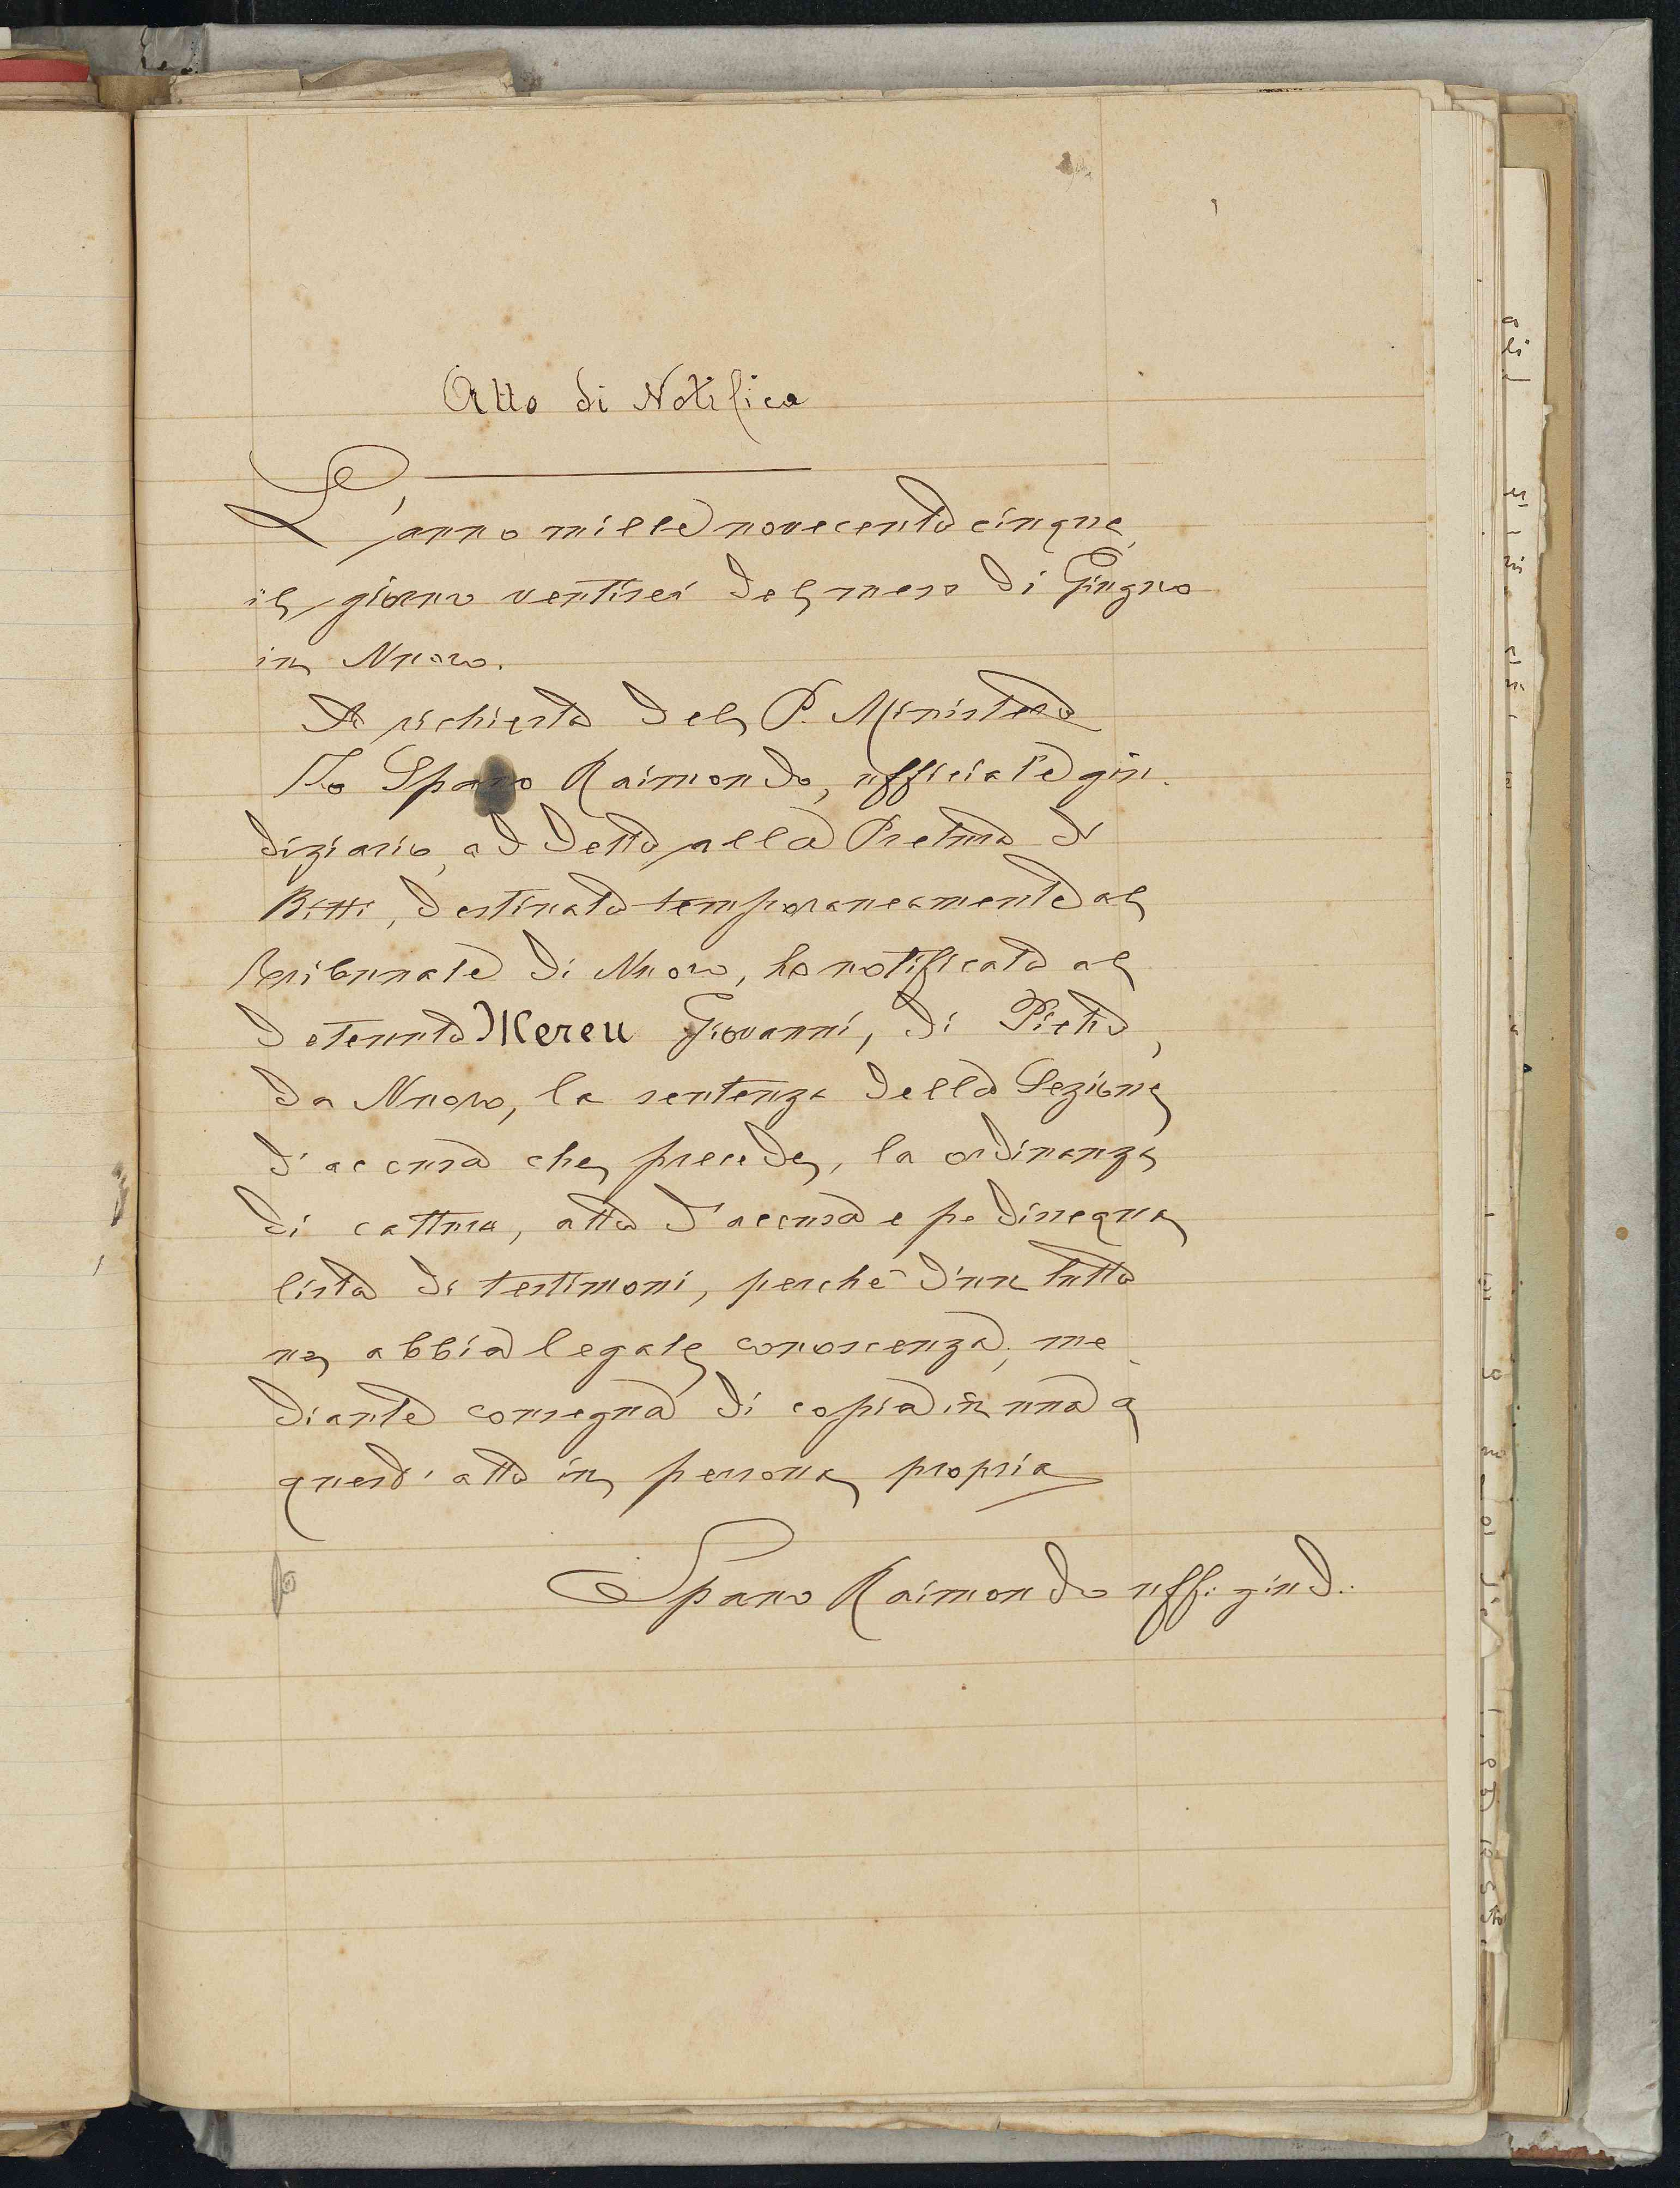 Atto di Notifica
L'anno mille novecento cinque,
il giorno ventisei del mese di Giugno
in Nuoro.
A richiesta del P. Ministero
Io Spano Raimondo, ufficiale giu-
diziario, addetto alla Pretura di
Bitti, destinato temporaneamente al
Tribunale di Nuoro, ho notificato al
detenuto Mereu Giovanni, di Pietro,
da Nuoro, la sentenza della Sezione
d'accusa che precede, la ordinanza
di cattura, atto d'accusa e pedissequa
lista di testimoni, perchè d'un tutto
ne abbia legale conoscenza, me-
diante consegna di copia in una a
quest'atto in persona propria
Spano Raimondo uff. giud.